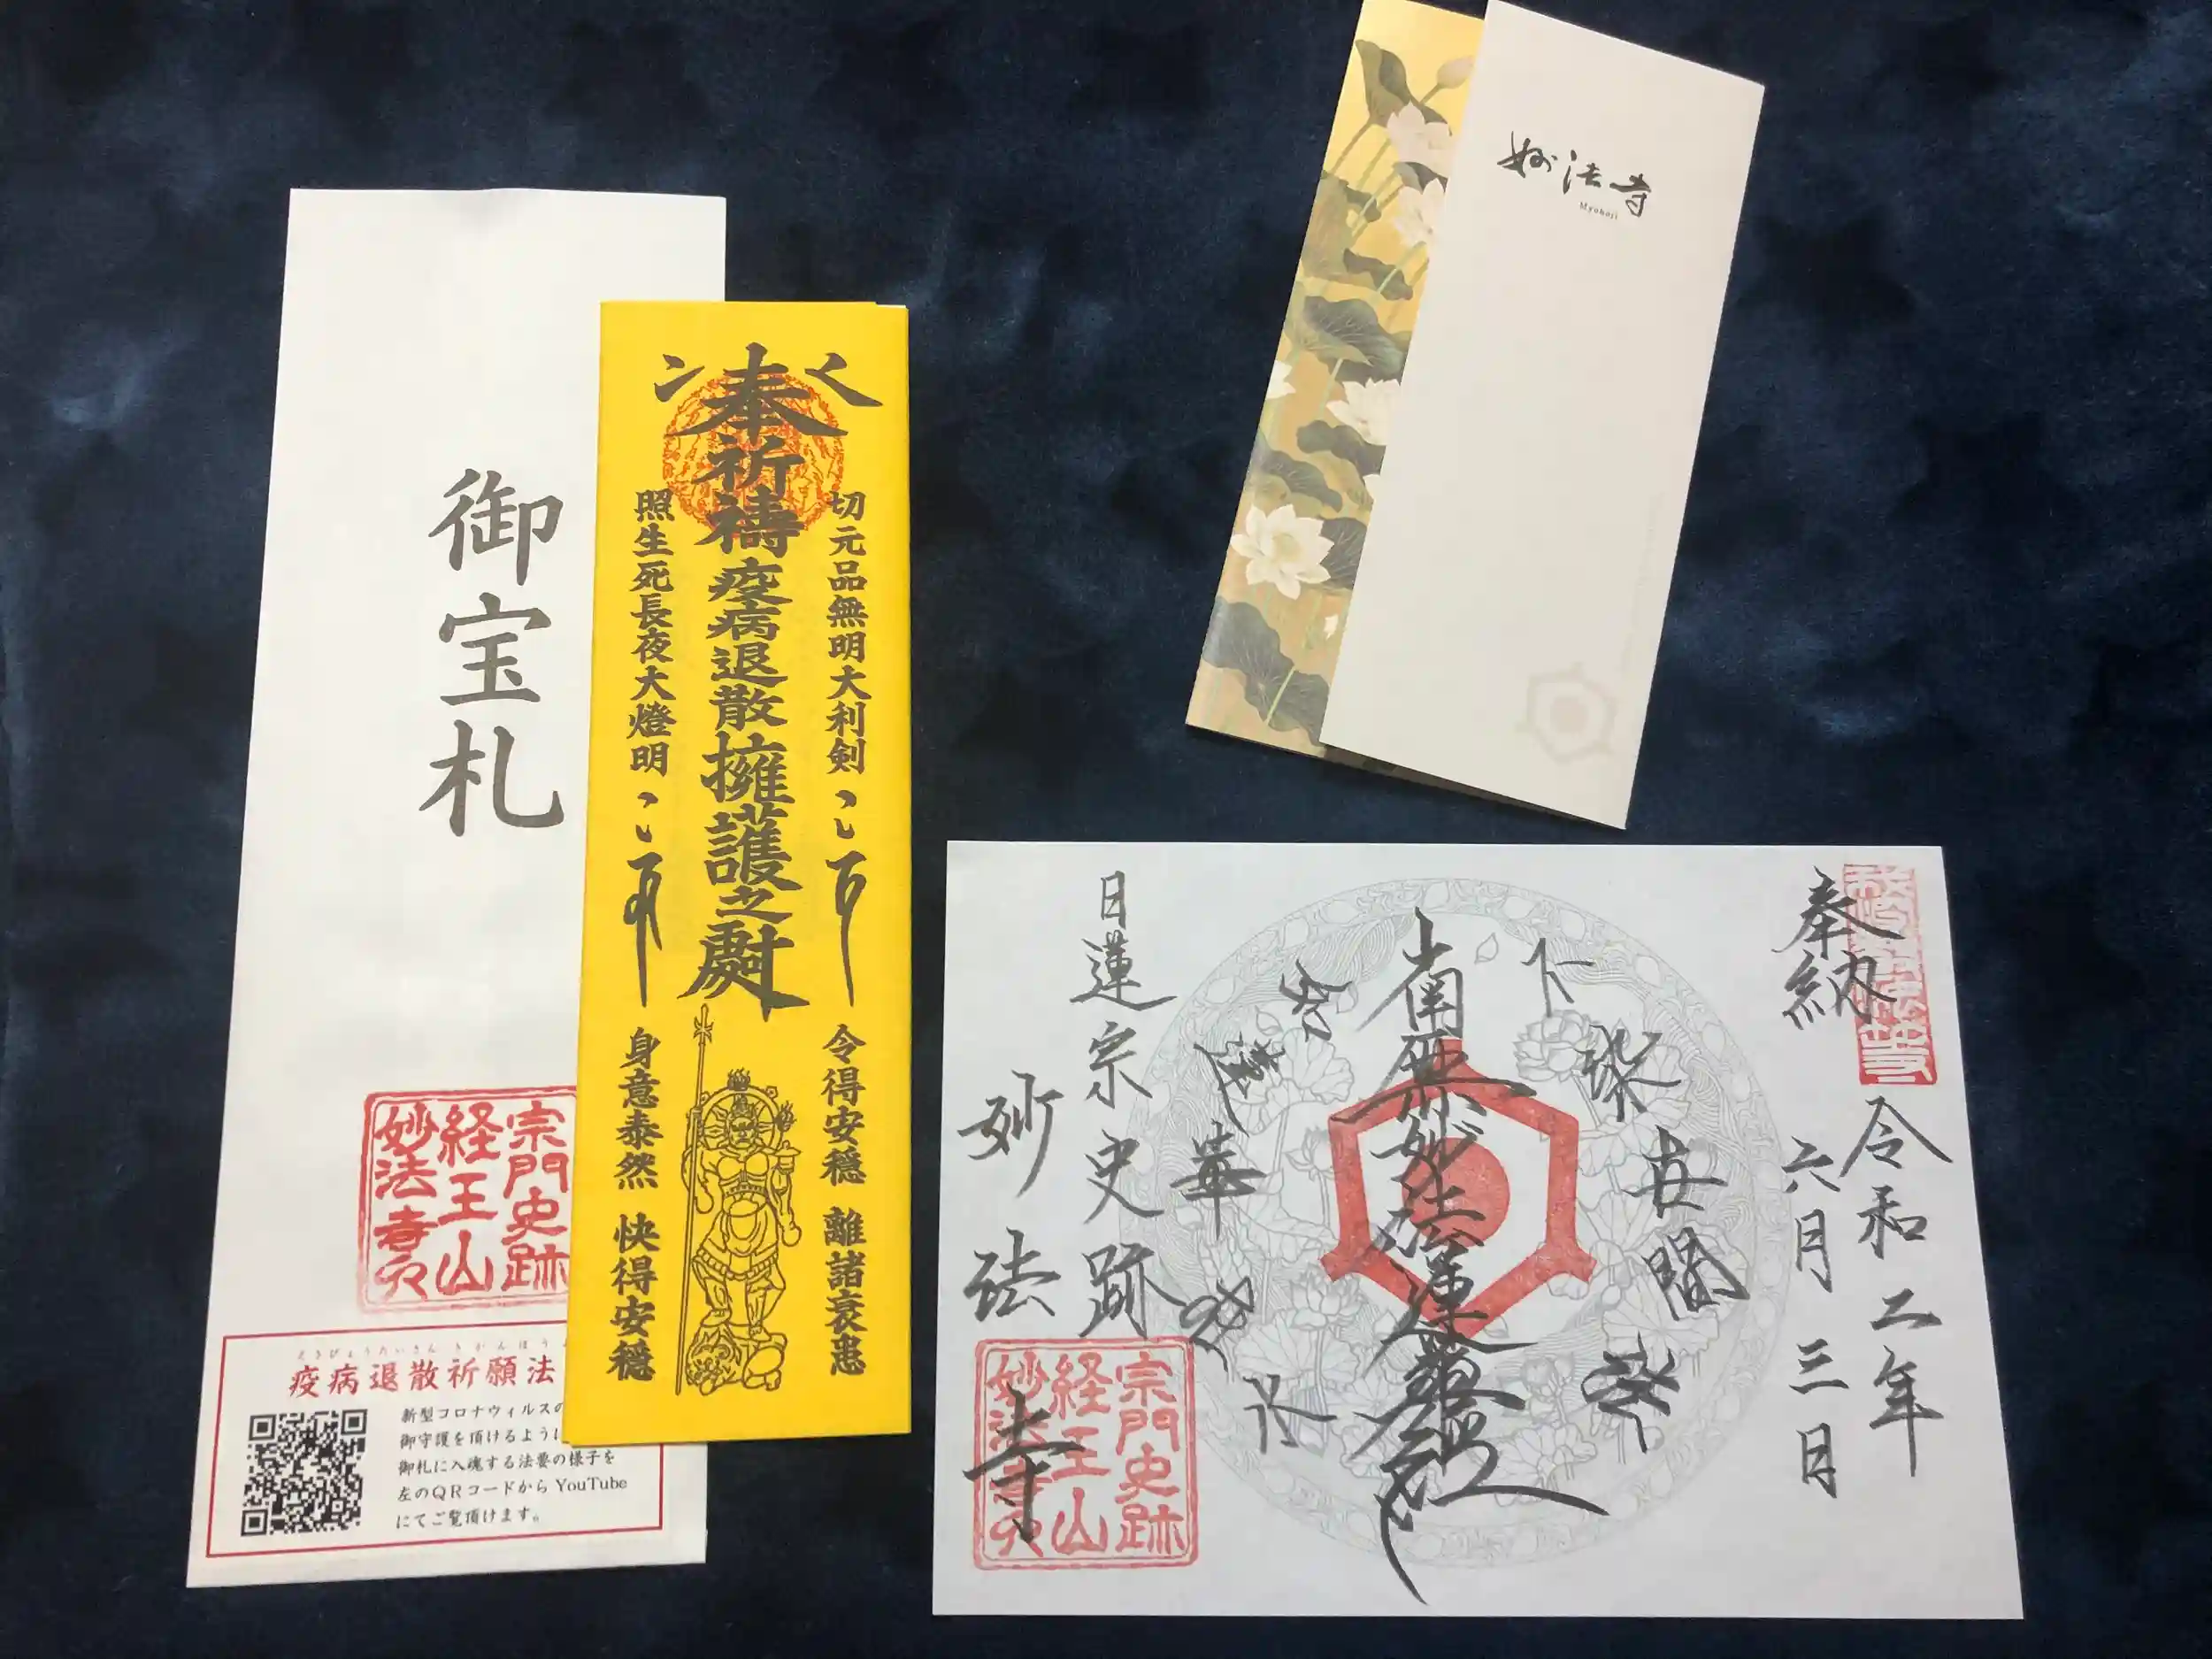 御宝札
宗門史跡
経王山
妙法寺
えきびょうたいさんきがんほう
疫病退散祈願法
新型コロナウィルスの
御守護を頂けるように
御札に入魂する法要の様子を
左のQRコードから YouTube
にてご覧頂けます。
奉祈禱疫病退散擁護之
切元品無明大利剣
照生死長夜大燈明
令得安穏 離諸衰患
身意泰然 快得安穏
妙法寺
Myohoji
奉納
令和二年
六月三日
南無妙法蓮華経
日蓮宗史跡
妙法寺
宗門史跡
経王山
妙法寺